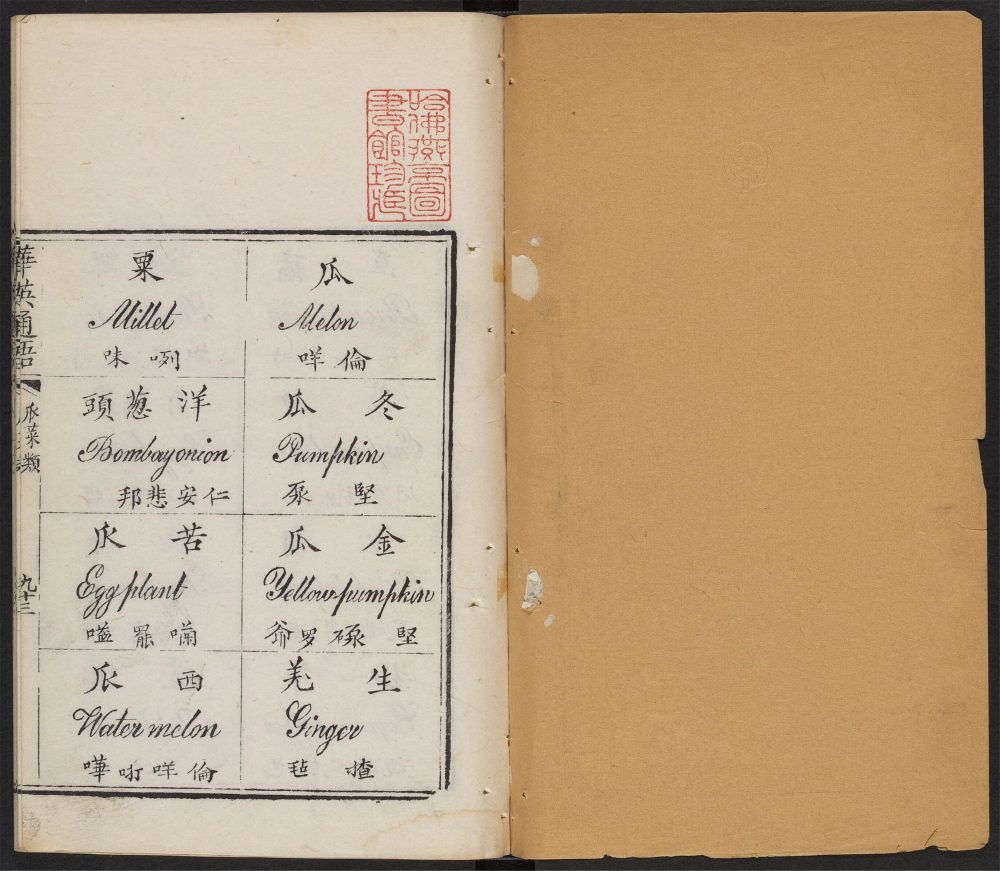 哈佛燕
圖書館珍
華英通語
瓜菜類
九十三
瓜
Melon
咩倫
冬瓜
Pumpkin
堅
金瓜
Yellow pumpkin
爺罗 堅
生羌
Ginger
毡揸
粟
Millet
咪咧
洋葱頭
Bombay onion
邦悲安仁
苦瓜
Egg plant
嗌罷囒
西瓜
Water melon
嘩咑咩倫